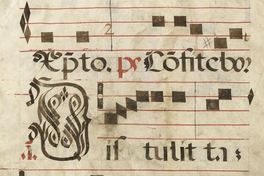 Xp̄to. ps Cōfitebor
is tulit